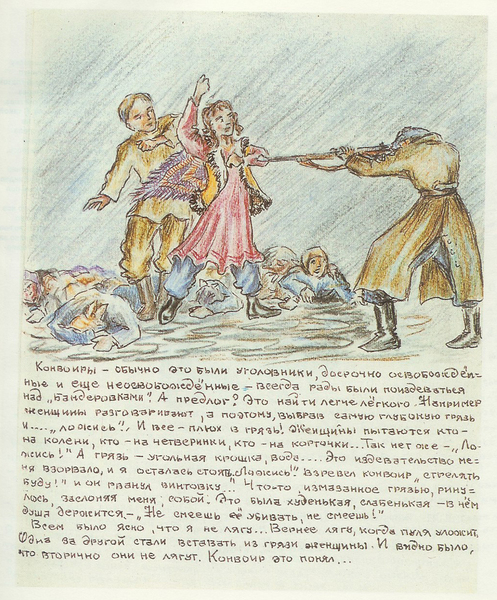 Конвоиры – обычно это были уголовники, досрочно освобождён-
ные и еще неосвобождённые – всегда рады были поиздеваться
над „бандеровками“! А предлог? Это найти легче лёгкого. Например
женщины разговаривают, а поэтому, выбрав самую глубокую грязь
и.... „ложись“! И все – плюх в грязь! Женщины пытаются кто –
на колени, кто – на четверинки, кто – на корточки... Так нет же – „Ло-
жись!“ А грязь – угольная крошка, вода.... Это издевательство ме-
ня взорвало, и я осталась стоять. „Ложись!“ взревел конвоир, „стрелять
буду!“ и он рванул винтовку... Что-то, измазанное грязью, рину-
лось, заслоняя меня собой. Это была худенькая, слабенькая – в чём
душа держится – „Не смеешь её убивать, не смеешь!“
Всем было ясно, что я не лягу... Вернее лягу, когда пуля уложит.
Одна за другой стали вставать из грязи женщины. И видно было,
что вторично они не лягут. Конвоир это понял...